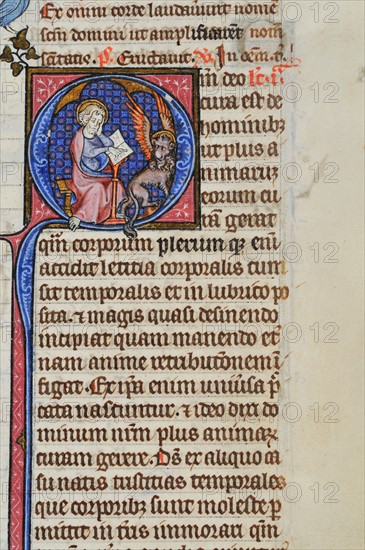 Ex omni corde laudauit nomē
scm domini ut amplificaret nom
in deo
cura est de
hominibꝫ
ut plus a
nimaruꝫ
eorum cu
ram gerat
qm̄ corporum plerum qꝫ eni
accidit letitia corporalis cum
sit temporalis et in lubrico po
sita. ⁊ magis quasi desinendo
incipiat quam manendo et
nam anime retributōnem
figat. Ex ip̄a enim uniu̾sa p̄
cata nascuntur. ⁊ ideo dixi do
minum nr̄m plus animaꝝ
curam gerere. Ds̄ ex aliquo ca
su natis tristitias temporales
que corporibꝫ sunt moleste p̄
mittit in immorari qm̄
PHOTO 12